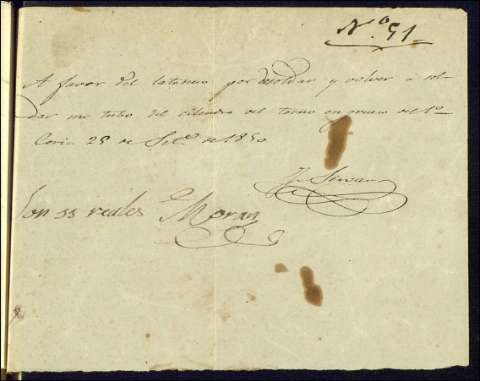 N.º 51
A favor del latonero por desoldar y volver a sol-
dar un tubo del cilindro del torno en enero del 1º
Coria 25 de Set.e de 1850
J. Serrano
Son 33 reales Moran